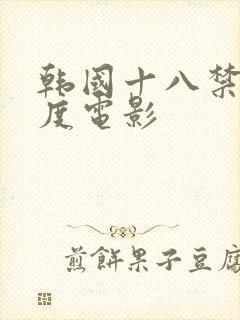 韩國十八禁
度電影
煎餅果子豆腐